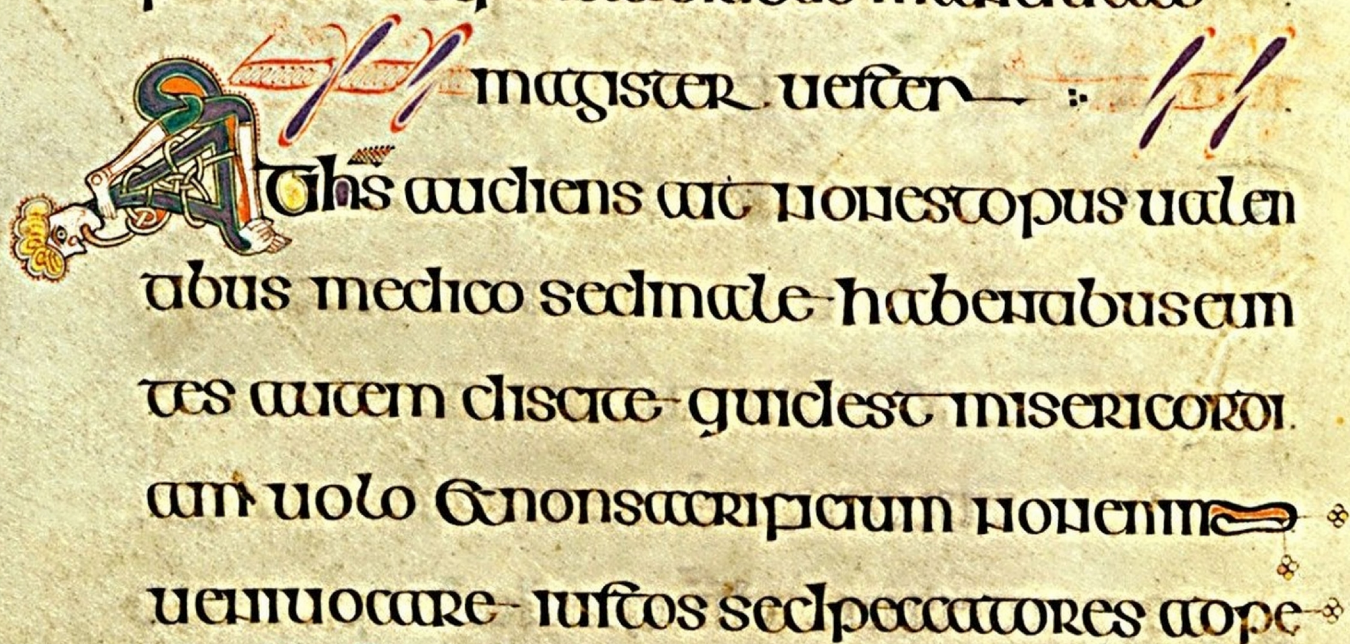 magister uester
At ihs audiens ait nonestopus ualen
tibus medico sedmale habentibus eun
tes autem discite quidest misericordi
am uolo & nonsacrificium nonenim
ueniuocare iustos sedpeccatores adpe